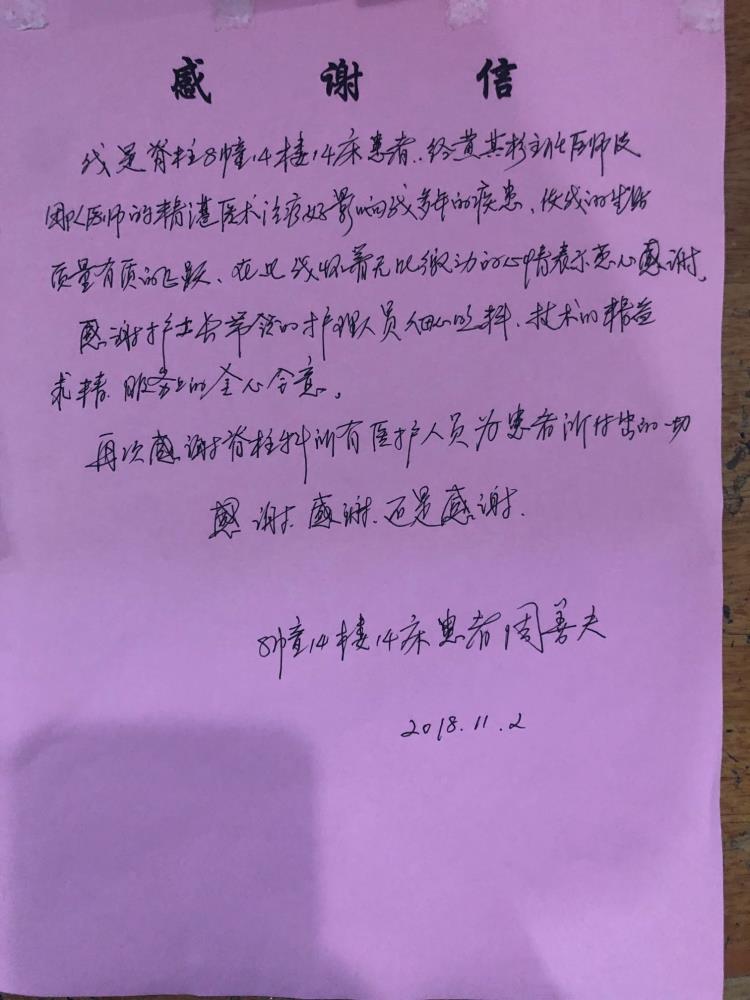 感谢信
我是脊柱8幢14楼14床患者.经黄其杉主任医师及
团队医师的精湛医术治疗好影响我多年的疾患、使我的生活
质量有质的飞跃、在此我怀着无比激动的心情表示衷心感谢.
感谢护士长带领的护理人员细心照料、技术的精益
求精、服务上的全心全意。
再次感谢脊柱科所有医护人员为患者所付出的一切
感谢.感谢.还是感谢.
8幢14楼14床患者周善夫
2018.11.2